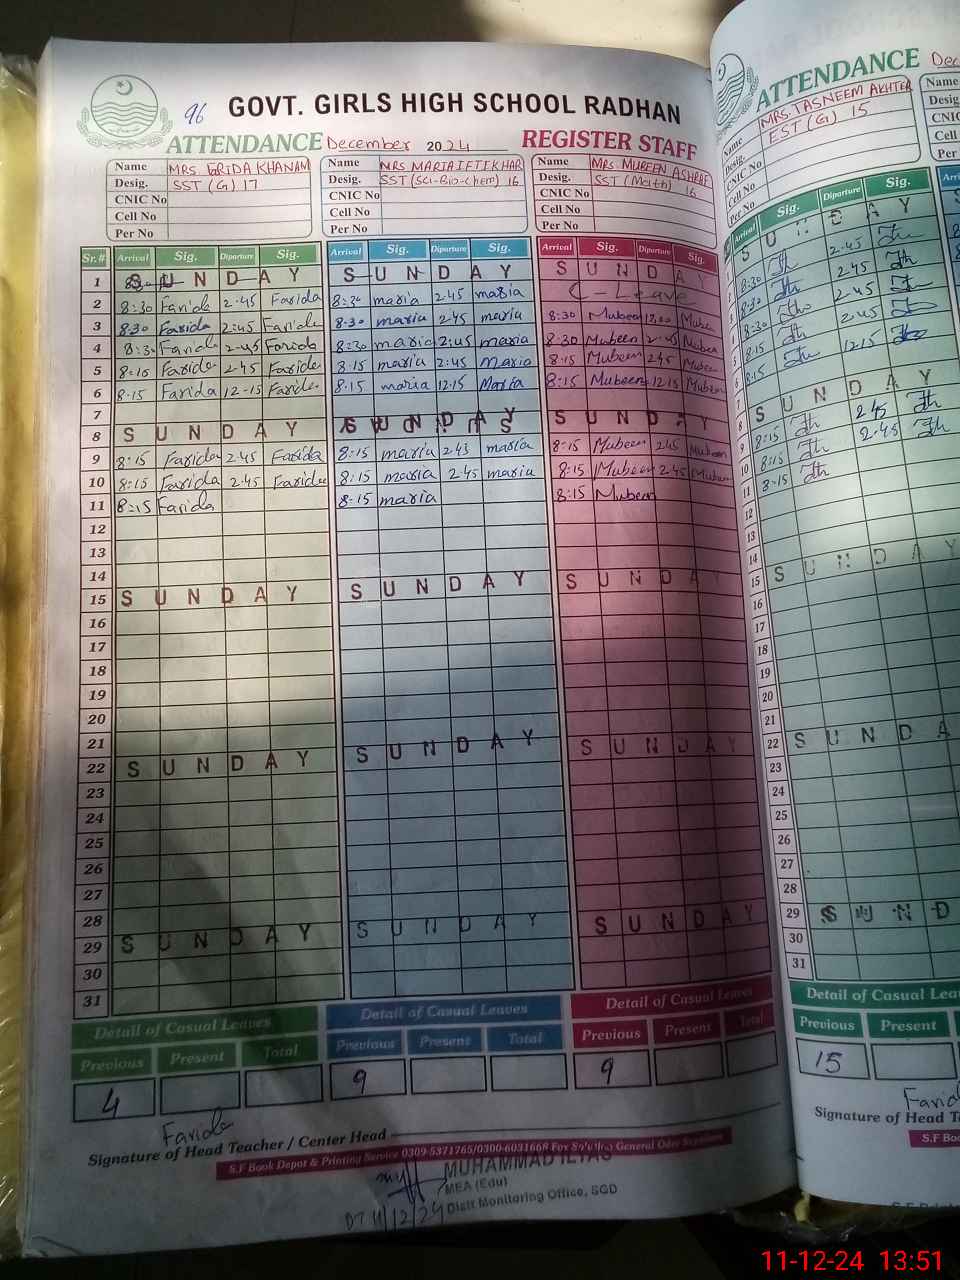 96 GOVT. GIRLS HIGH SCHOOL RADHAN
ATTENDANCE December 2024 REGISTER STAFF
Name MRS. FARIDA KHANAM
Desig. SST (G) 17
CNIC No
Cell No
Per No
Name MRS MARIA IFTIKHAR
Desig. SST (Sci-Bio-Chem) 16
CNIC No
Cell No
Per No
Name MRS MUBEEN ASHRAF
Desig. SST (Math) 16
CNIC No
Cell No
Per No
Sr.# Arrival Sig. Diparture Sig. Arrival Sig. Diparture Sig. Arrival Sig. Diparture Sig.
1 SUNDAY SUNDAY SUNDAY
2 8:30 Farida 2.45 Farida 8:30 maria 2.45 maria C-Leave
3 8.30 Farida 2:45 Farida 8.30 maria 2.45 maria 8:30 Mubeen 12:00 Mubeen
4 8:30 Farida 2.45 Farida 8:30 maria 2:45 maria 8.30 Mubeen 2.45 Mubeen
5 8:15 Farida 2.45 Farida 8.15 maria 2:45 Maria 8:15 Mubeen 2.45 Mubeen
6 8.15 Farida 12-15 Farida 8.15 maria 12.15 Maria 8:15 Mubeen 12.15 Mubeen
7
8 SUNDAY SUNDAY SUNDAY
9 8:15 Farida 2.45 Farida 8:15 maria 2.45 maria 8:15 Mubeen 2.45 Mubeen
10 8:15 Farida 2.45 Farida 8:15 maria 2.45 maria 8:15 Mubeen 2.45 Mubeen
11 8:15 Farida 8:15 maria 8:15 Mubeen
12
13
14
15 SUNDAY SUNDAY SUNDAY
16
17
18
19
20
21
22 SUNDAY SUNDAY SUNDAY
23
24
25
26
27
28
29 SUNDAY SUNDAY SUNDAY
30
31
Detail of Casual Leaves Detail of Casual Leaves Detail of Casual Leaves
Previous Present Total Previous Present Total Previous Present Total
4 9 9
Farida
Signature of Head Teacher / Center Head
S.F Book Depot & Printing Service 0309-5371765/0300-6031668 For
General Oder
MUHAMMAD ILYAS
MEA (Edu)
Distt Monitoring Office, SGD
DT 11/12/24
ATTENDANCE
Name MRS. TASNEEM AKHTER
Desig. EST (G) 15
CNIC No
Cell No
Per No
Name
Desig.
CNIC
Cell N
Per
Arrival Sig. Diparture Sig.
SUNDAY
8:30 2.45
8:30 2.45
8:30 2.45
8.15 2.45
8.15 12.15
SUNDAY
8:15 2.45
8:15 2.45
8.15
12
13
14
15 SUNDAY
16
17
18
19
20
21
22 SUNDA
23
24
25
26
27
28
29 SUND
30
31
Detail of Casual Lea
Previous Present
15
Farida
Signature of Head T
S.F Bo
11-12-24 13:51